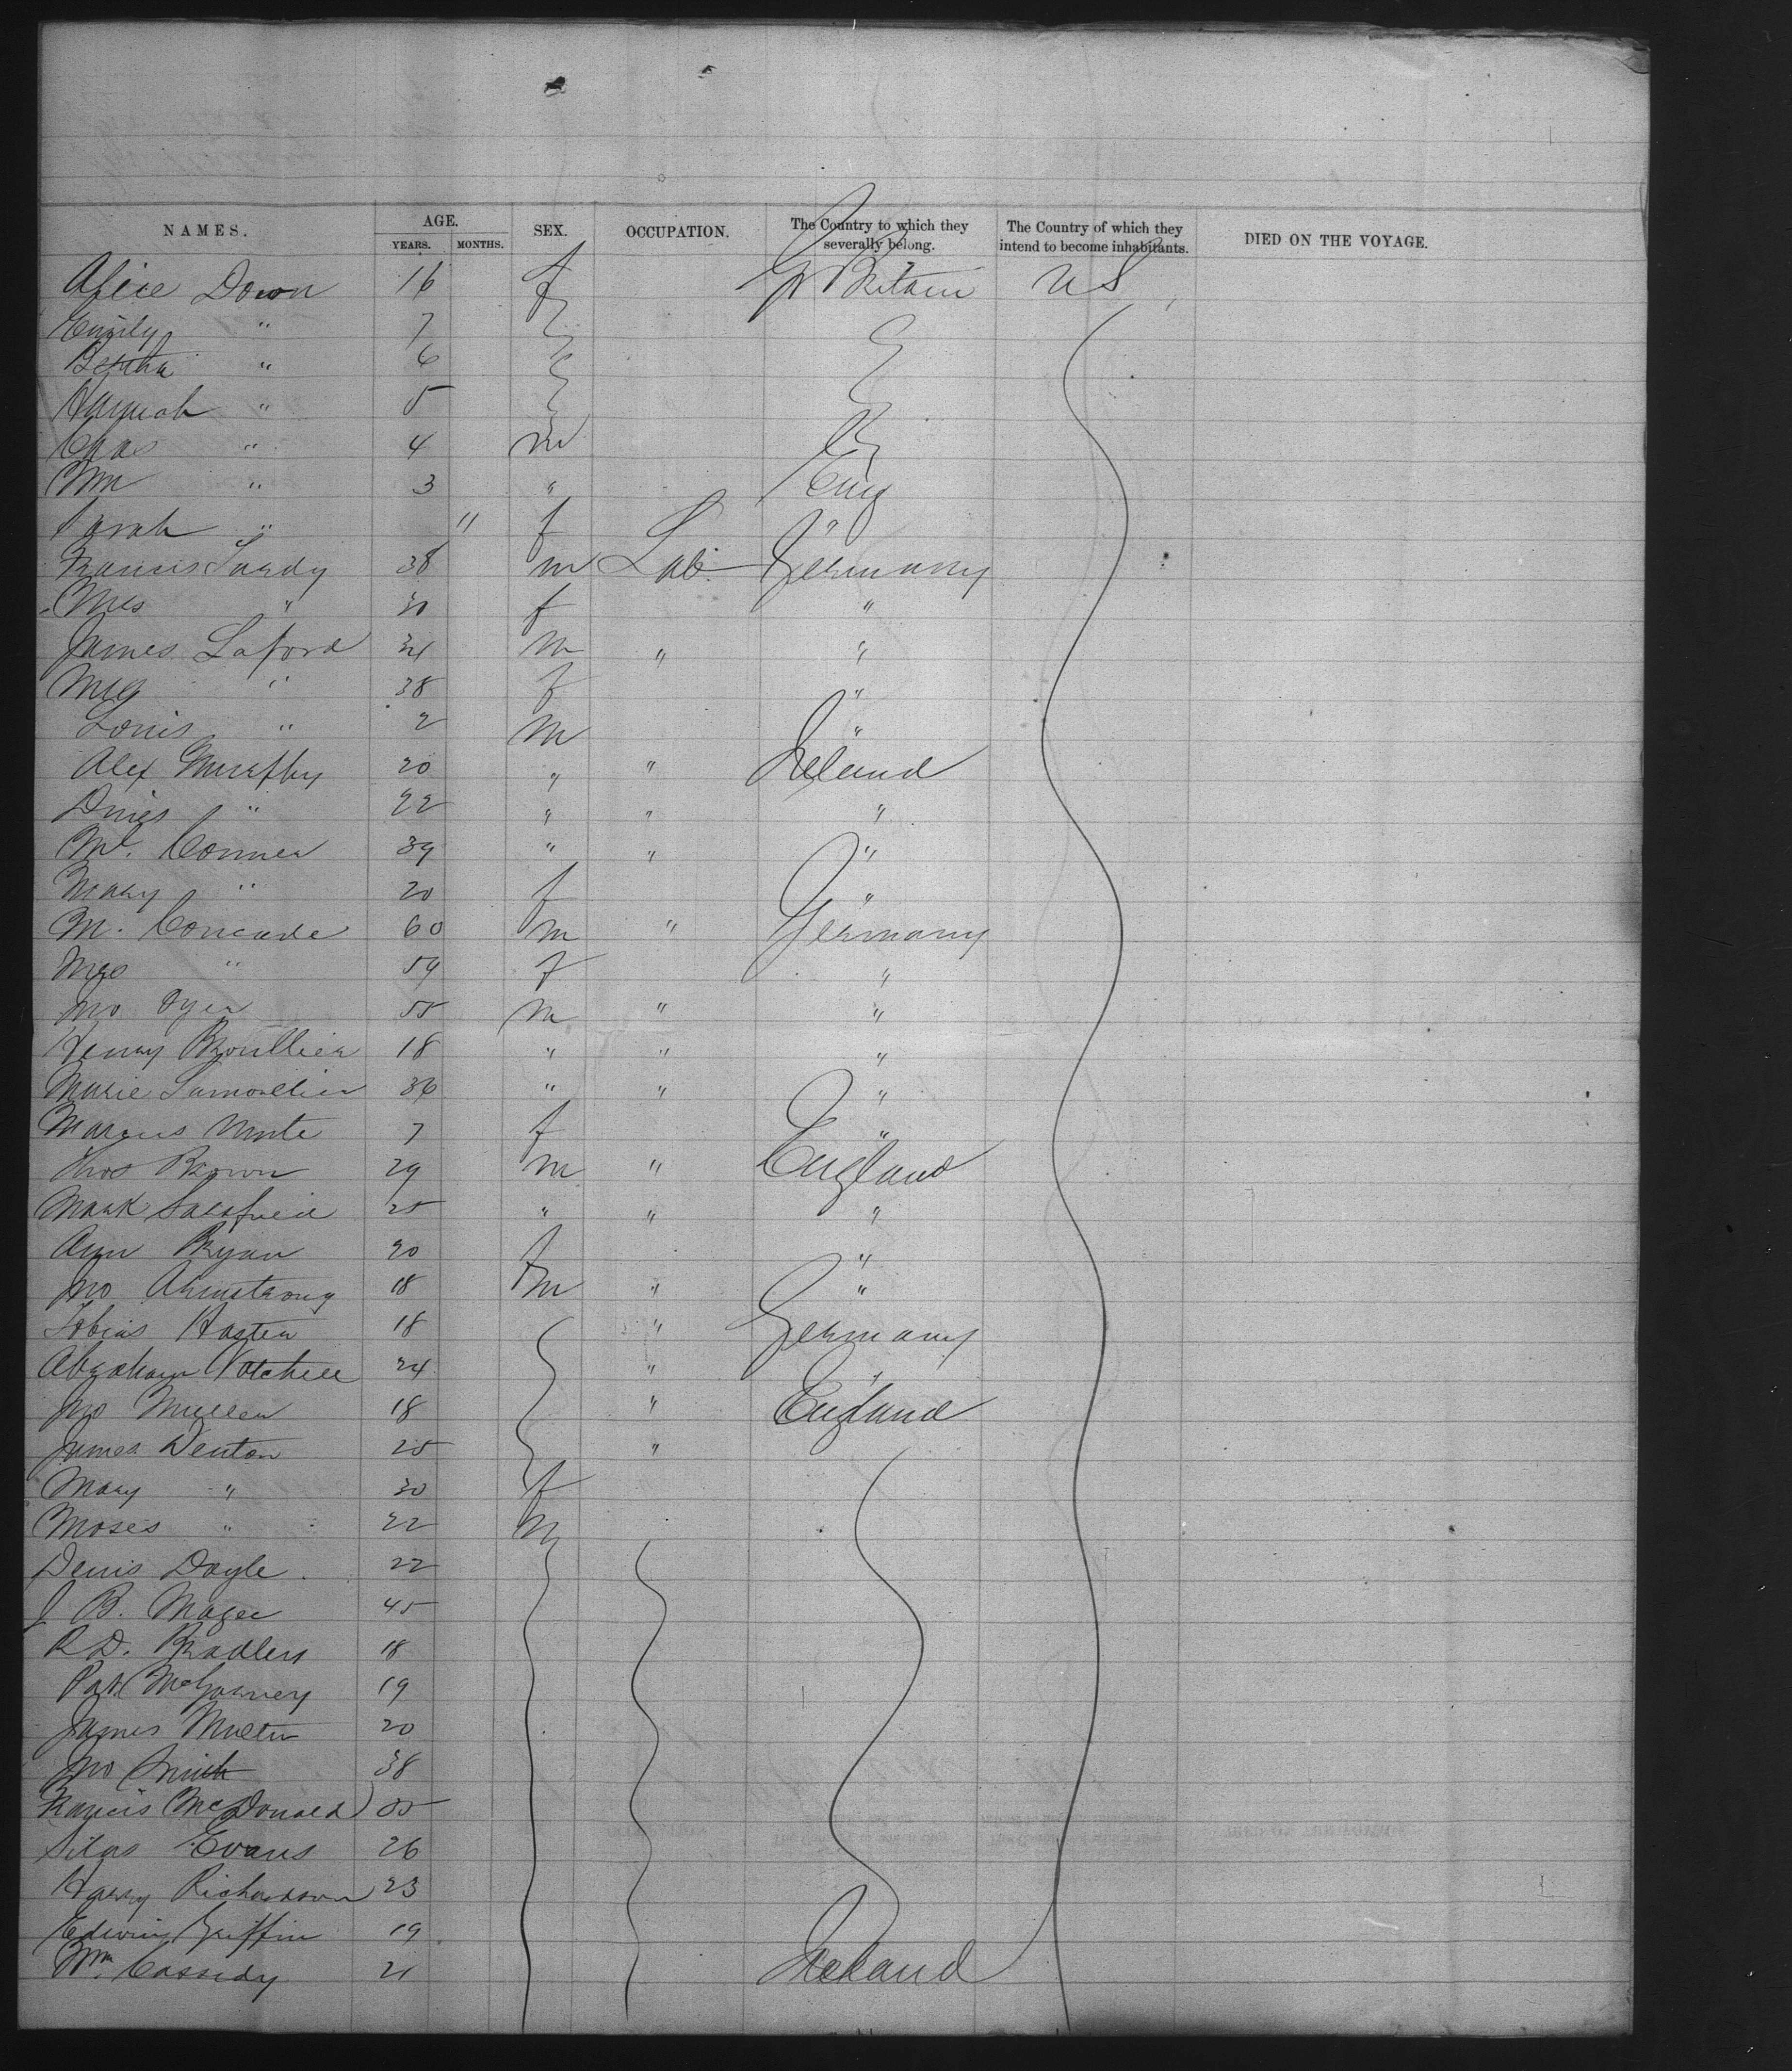 NAMES. AGE. YEARS. MONTHS. SEX. OCCUPATION. The Country to which they severally belong. The Country of which they intend to become inhabitants. DIED ON THE VOYAGE.
Alice Down 16 f Gr Britain US
Emily " 7
Bertha " 6
Hannah " 5
Chas " 4 m
Wm " 3 " Eng
Sarah " " f "
Francis Tardy 38 m Lab. Germany
Mrs " 30 f "
James Laford 34 m " "
Mrs " 38 f "
Louis " 2 m "
Alex Murphy 20 " " Ireland
" 22 " " "
Connor 39 " " "
Mary " 20 f "
M. 60 m " Germany
Mrs " 59 f "
Jno 55 m " "
Henry 18 " " "
Marie 36 " " "
7 f "
Thos Brown 29 m " England
Mark 25 " " "
Ann Ryan 20 f "
Jno Armstrong 18 m " "
Tobias 18 " Germany
Abraham 24 " "
Jno Mullen 18 " England
James Denton 25 "
Mary " 30 f
Moses " 22 m
Denis Doyle 22
J B. Magee 45
R D. 18
Pat 19
James 20
Jno Smith 38
Francis McDonald
Silas Evans 26
Harry Richardson 23
Edwin Griffin 19
Wm. Cassidy 21 Ireland